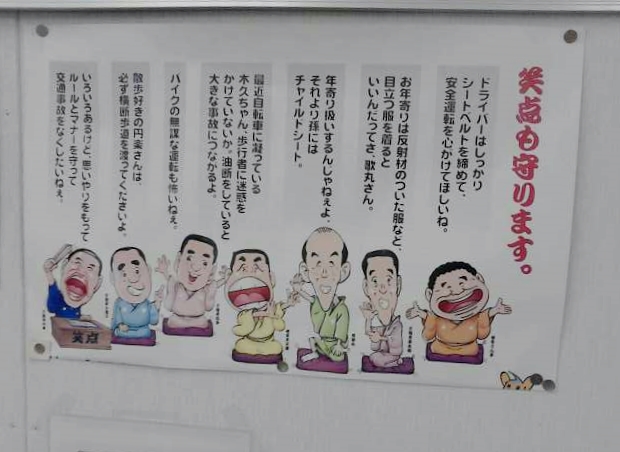 笑点も守ります。
ドライバーはしっかり
シートベルトを締めて、
安全運転を心がけてほしいね。
お年寄りは反射材のついた服など、
目立つ服を着ると
いいんだってさ、歌丸さん。
年寄り扱いするんじゃねぇよ。
それより孫には
チャイルドシート。
最近自転車に凝っている
木久ちゃん、歩行者に迷惑を
かけていないか。油断をしていると
大きな事故につながるよ。
バイクの無謀な運転も怖いねぇ。
散歩好きの円楽さんは、
必ず横断歩道を渡ってくださいよ。
いろいろあるけど、思いやりをもって
ルールとマナーを守って
交通事故をなくしたいねぇ。
笑点